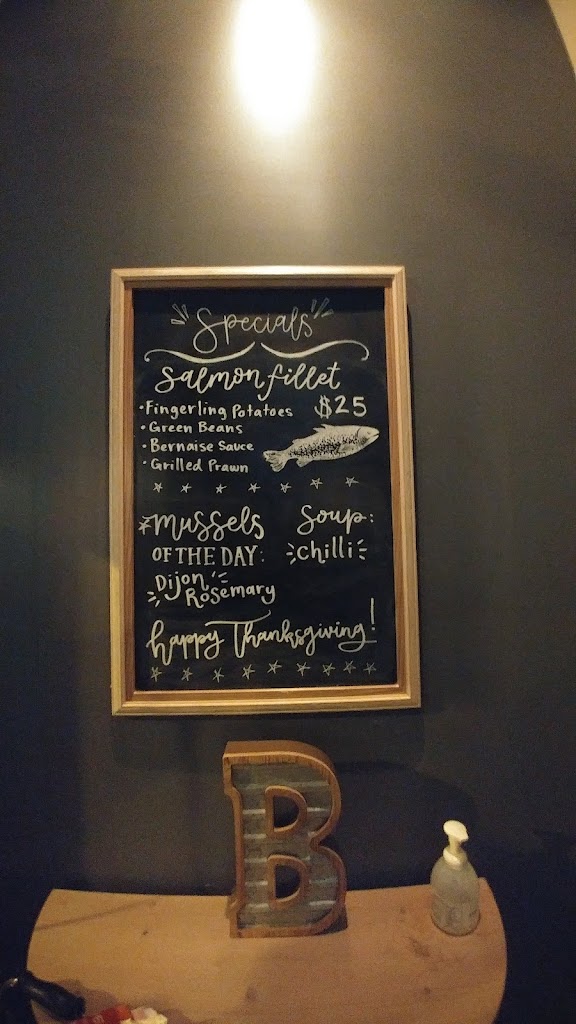 Specials
Salmon fillet
• Fingerling Potatoes $25
• Green Beans
• Bernaise Sauce
• Grilled Prawn
Mussels
OF THE DAY:
Dijon
Rosemary
Soup:
chilli
happy Thanksgiving!
B